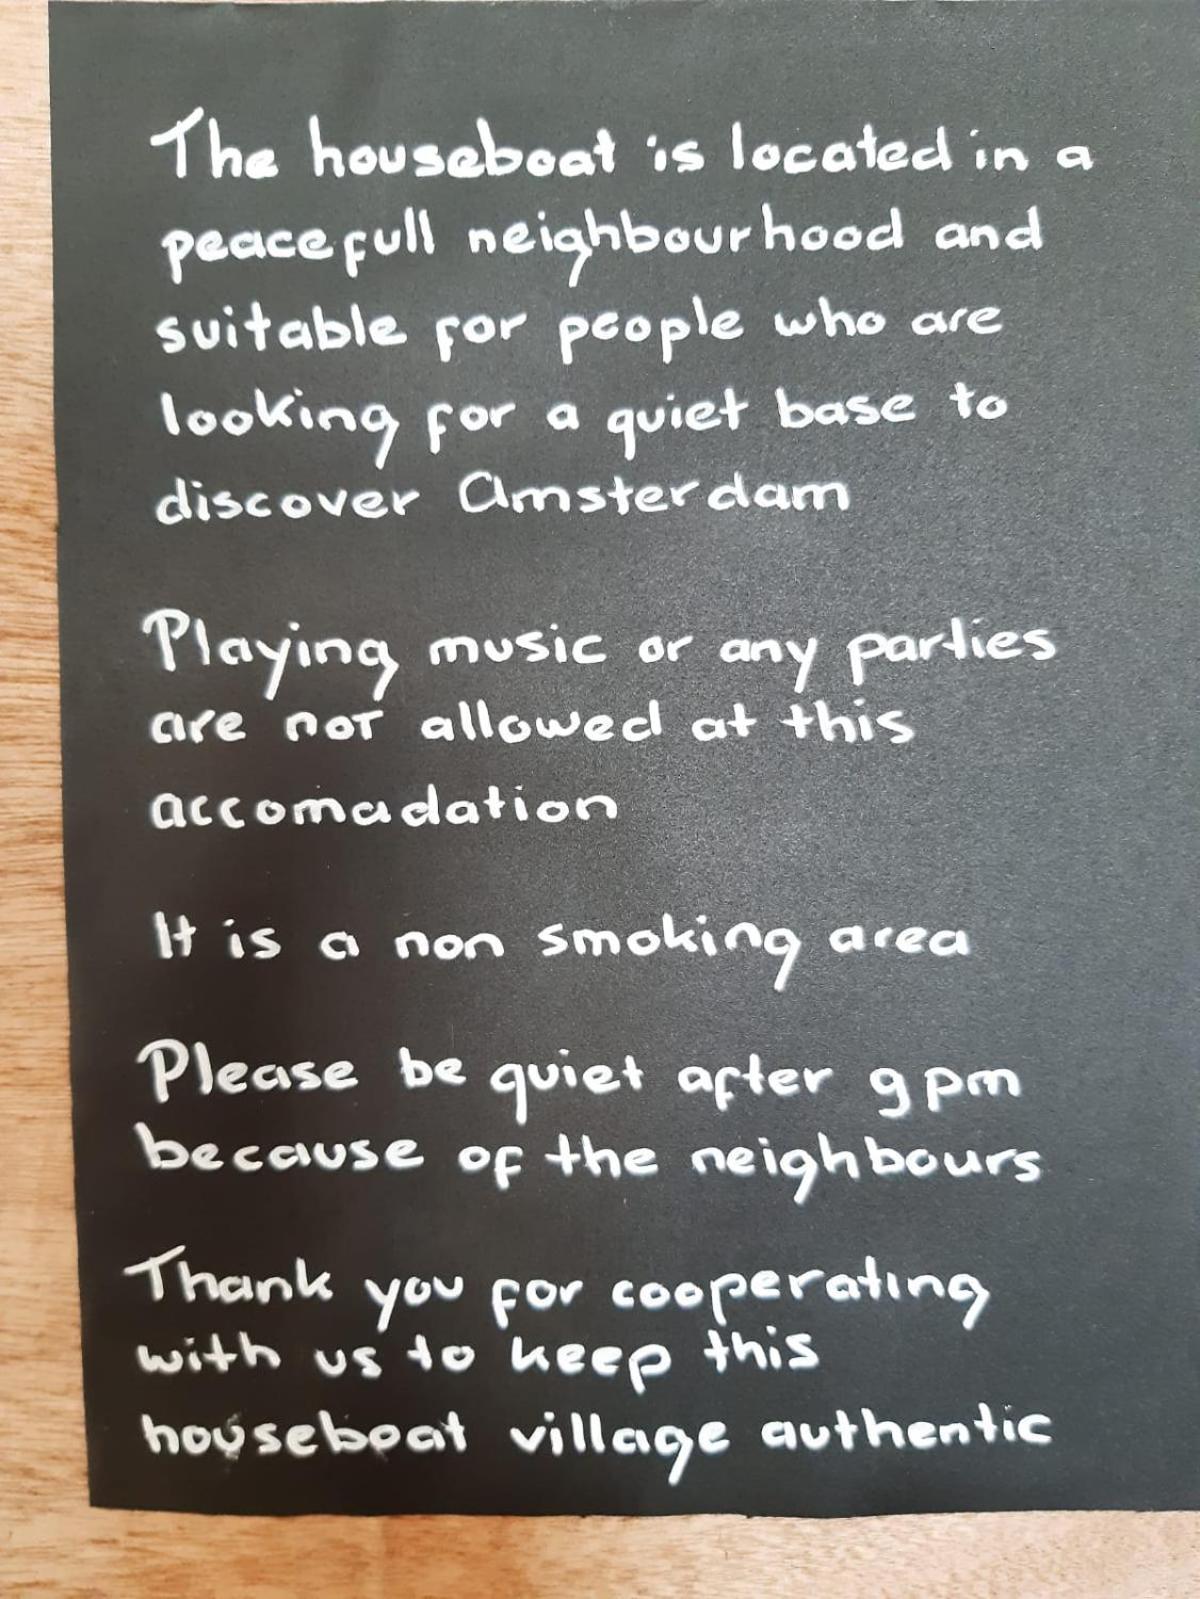 The houseboat is located in a
peacefull neighbourhood and
suitable for people who are
looking for a quiet base to
discover Amsterdam
Playing music or any parties
are not allowed at this
accomadation
It is a non smoking area
Please be quiet after 9 pm
because of the neighbours
Thank you for cooperating
with us to keep this
houseboat village authentic